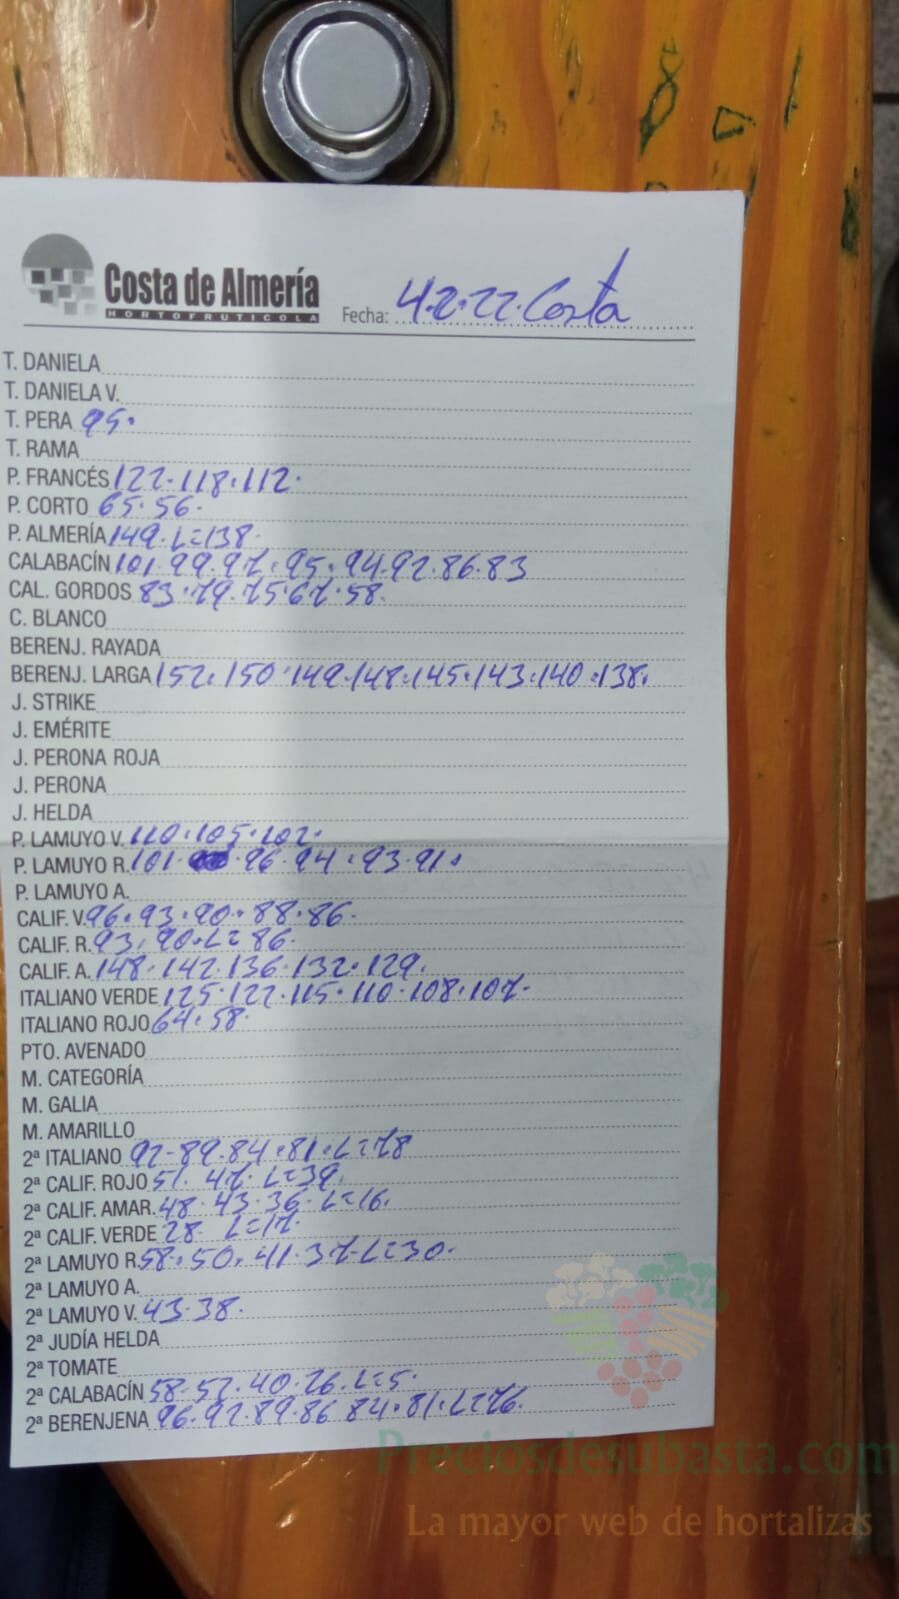 Costa de Almería
HORTOFRUTICOLA
Fecha: 4.2.22. Costa
T. DANIELA
T. DANIELA V.
T. PERA 95.
T. RAMA
P. FRANCÉS 122.118.112.
P. CORTO 65.56.
P. ALMERÍA 149. L=138.
CALABACÍN 101.99.97.95.94.92.86.83
CAL. GORDOS 83.79.75.67.58.
C. BLANCO
BERENJ. RAYADA
BERENJ. LARGA 152.150.149.148.145.143.140.138.
J. STRIKE
J. EMÉRITE
J. PERONA ROJA
J. PERONA
J. HELDA
P. LAMUYO V. 110.105.102.
P. LAMUYO R. 101. .96.94.93.91.
P. LAMUYO A.
CALIF. V. 96.93.90.88.86.
CALIF. R. 93.90.L=86.
CALIF. A. 148.142.136.132.129.
ITALIANO VERDE 125.122.115.110.108.107.
ITALIANO ROJO 64.58.
PTO. AVENADO
M. CATEGORÍA
M. GALIA
M. AMARILLO
2ª ITALIANO 92-89.84.81.L=78
2ª CALIF. ROJO 51. 47. L=39.
2ª CALIF. AMAR. 48.43.36.L=16.
2ª CALIF. VERDE 28. L=17.
2ª LAMUYO R. 58.50.41.37.L=30.
2ª LAMUYO A.
2ª LAMUYO V. 43.38.
2ª JUDÍA HELDA
2ª TOMATE
2ª CALABACÍN 58.52.40.26.L=5.
2ª BERENJENA 96.92.89.86.84.81.L=76.
Preciosdesubasta.com
La mayor web de hortalizas